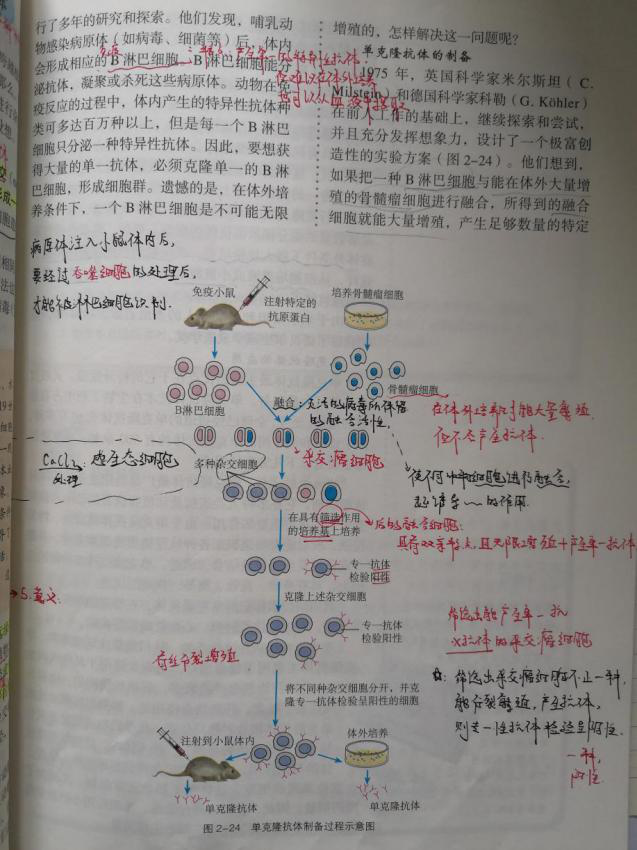 行了多年的研究和探索。他们发现，哺乳动
物感染病原体（如病毒、细菌等）后，体内
会形成相应的B淋巴细胞，B淋巴细胞能分
泌抗体，凝聚或杀死这些病原体。动物在免
疫反应的过程中，体内产生的特异性抗体种
类可多达百万种以上，但是每一个B淋巴
细胞只分泌一种特异性抗体。因此，要想获
得大量的单一抗体，必须克隆单一的B淋
巴细胞，形成细胞群。遗憾的是，在体外培
养条件下，一个B淋巴细胞是不可能无限
增殖的，怎样解决这一问题呢？
单克隆抗体的制备
1975年，英国科学家米尔斯坦（C.
Milstein）和德国科学家科勒（G. Köhler）
在前人工作的基础上，继续探索和尝试，
并且充分发挥想象力，设计了一个极富创
造性的实验方案（图2-24）。他们想到，
如果把一种B淋巴细胞与能在体外大量增
殖的骨髓瘤细胞进行融合，所得到的融合
细胞就能大量增殖，产生足够数量的特定
病原体注入小鼠体内后，
要经过吞噬细胞的处理后，
才能被淋巴细胞识别.
免疫小鼠
注射特定的
抗原蛋白
培养骨髓瘤细胞
B淋巴细胞
骨髓瘤细胞
融合：灭活的病毒所保留
的融合活性.
在体外培养时能大量增殖
但不产生抗体.
CaCl₂处理：感受态细胞
多种杂交细胞
杂交瘤细胞
使不同细胞进行融合，
起诱导~~的作用.
在具有筛选作用
的培养基上培养
后的融合细胞：
具有双亲特点，且无限增殖+产生单一抗体
专一抗体
检验阳性
5.意义：
克隆上述杂交细胞
专一抗体
检验阳性
有丝分裂增殖
筛选出能产生单一抗
x抗体的杂交瘤细胞
将不同种杂交细胞分开，并克
隆专一抗体检验呈阳性的细胞
筛选出杂交瘤细胞不止一种，
能分裂增殖，产生抗体，
则专一性抗体检验呈阳性.
一种，
阳性
注射到小鼠体内
体外培养
单克隆抗体
单克隆抗体
图2-24 单克隆抗体制备过程示意图